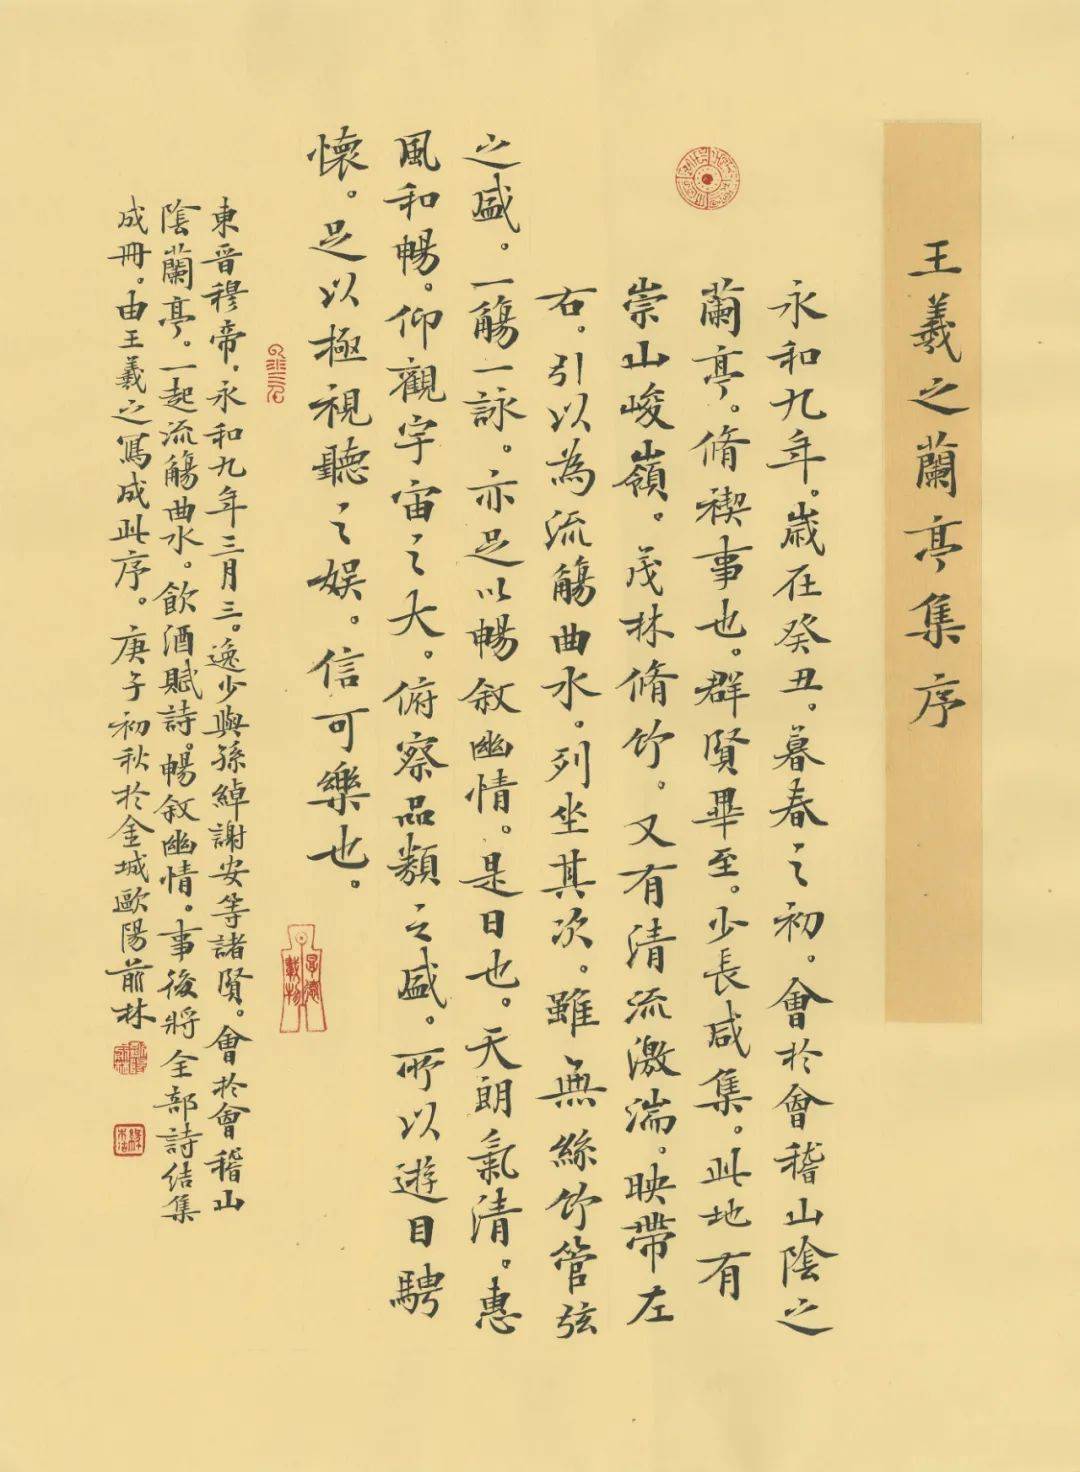 王羲之蘭亭集序
永和九年。歲在癸丑。暮春之初。會於會稽山陰之
蘭亭。脩禊事也。群賢畢至。少長咸集。此地有
崇山峻嶺。茂林脩竹。又有清流激湍。映帶左
右。引以為流觴曲水。列坐其次。雖無絲竹管弦
之盛。一觴一詠。亦足以暢敘幽情。是日也。天朗氣清。惠
風和暢。仰觀宇宙之大。俯察品類之盛。所以遊目騁
懷。足以極視聽之娛。信可樂也。
東晉穆帝。永和九年三月三。逸少與孫綽謝安等諸賢。會於會稽山
陰蘭亭。一起流觴曲水。飲酒賦詩。暢敘幽情。事後將全部詩結集
成冊。由王羲之寫成此序。庚子初秋於金城歐陽前林
厚德
載物